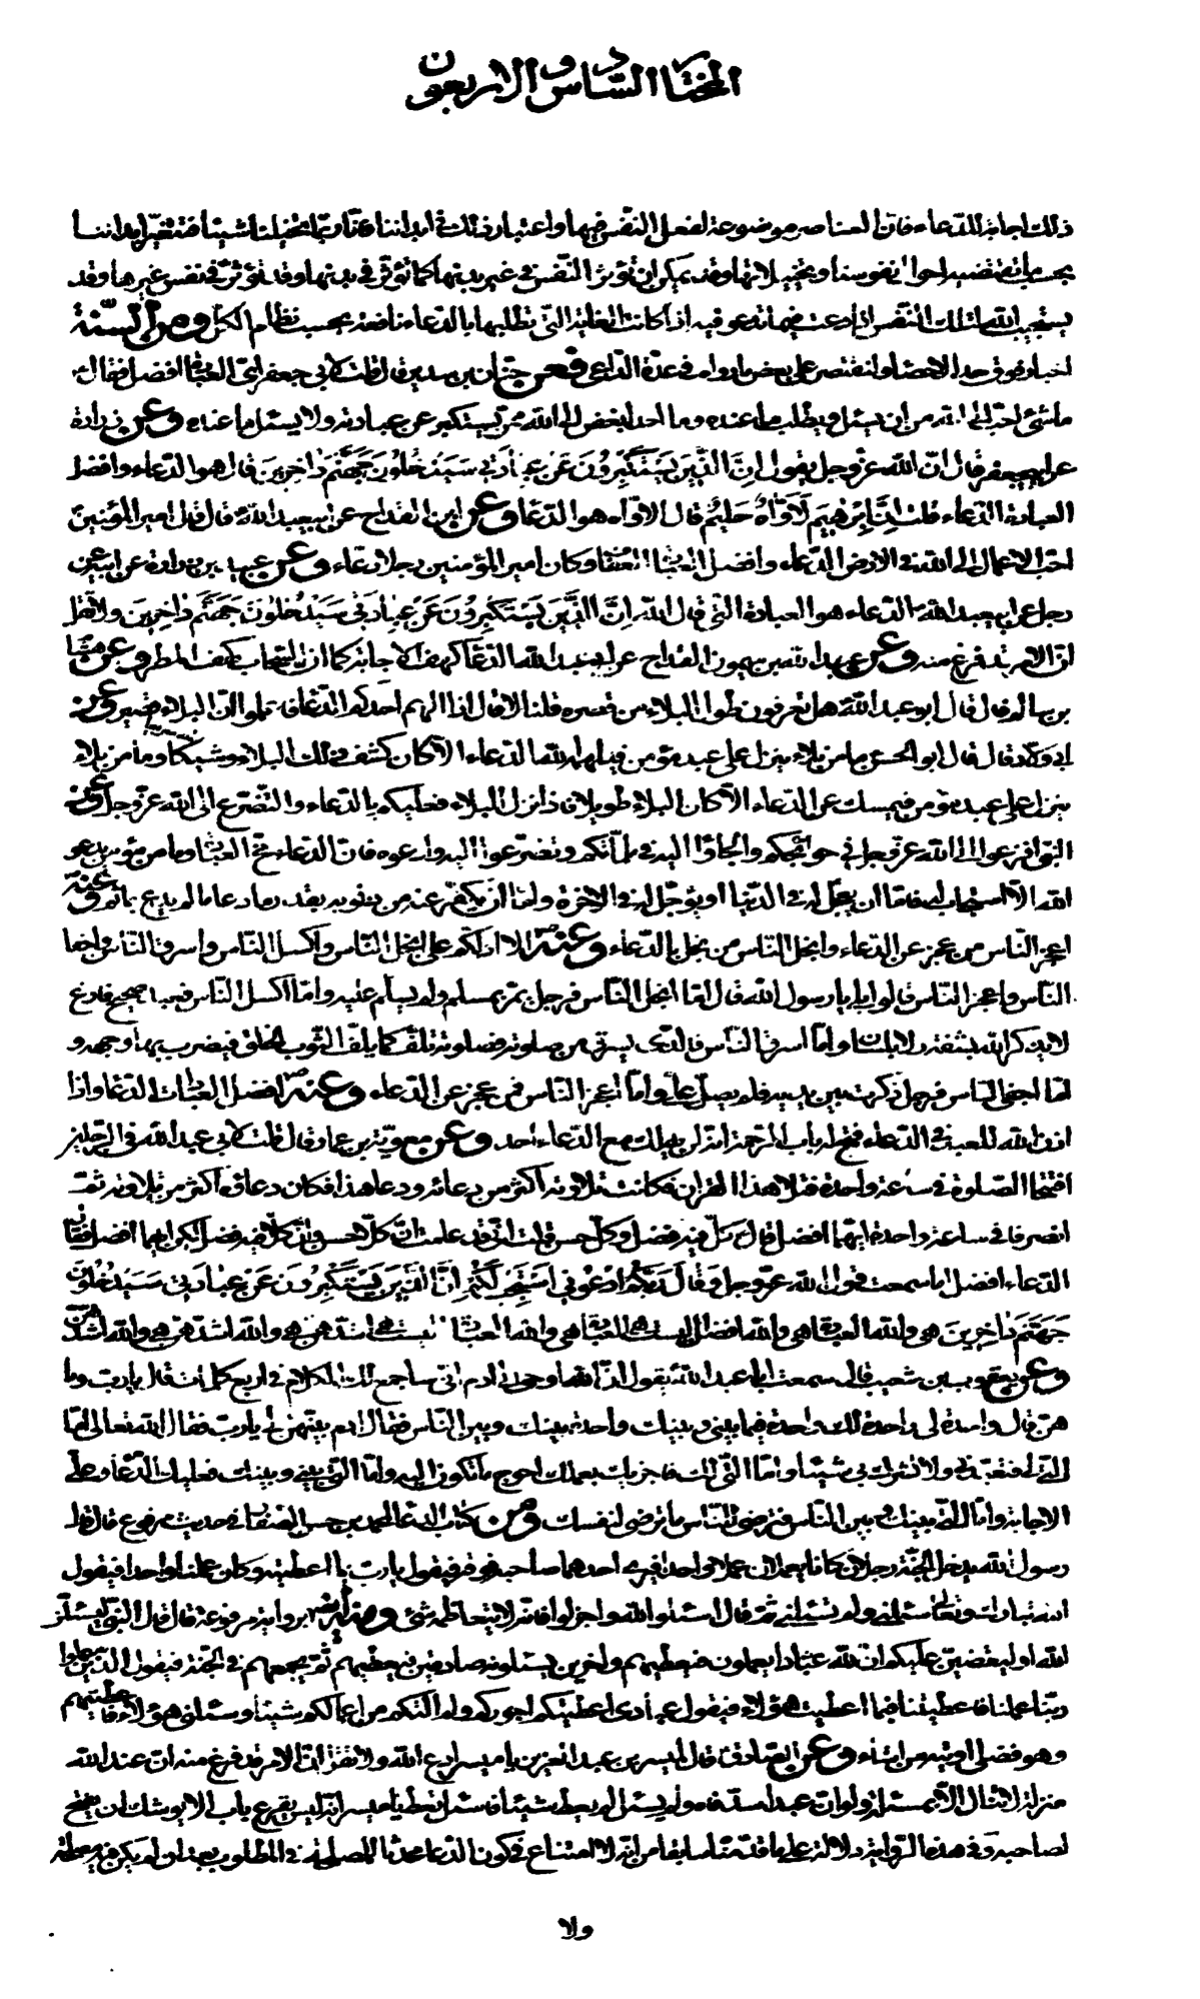 المختار السادس والاربعون
ذلك اجابة للدعاء فان العناصر موضوعة لفعل النفس فيها واعتبار ذلك في ابداننا فانا ربما تخيلنا شيئا فتتغير ابداننا
بحسب ما تقتضيه احوال نفوسنا وتخيلاتها وقد يمكن ان تؤثر النفس في غير بدنها كما تؤثر في بدنها وقد تؤثر في نفس غيرها وقد
يستجيب الله لتلك النفس اذا دعت فيما تدعو فيه اذا كانت الغاية التي تطلبها بالدعاء نافعة بحسب نظام الكل ومن السنة
اخبار فوق حد الاحصاء ولنقتصر على بعض ما رواه في عدة الداعي فعن حنان بن سدير قال قلت لابي جعفر اي العبادة افضل فقال
ما شئ احب الى الله من ان يسئل ويطلب ما عنده وما احد ابغض الى الله ممن يستكبر عن عبادته ولا يسئل ما عنده وعن زرارة
عن ابيجعفر قال ان الله عز وجل يقول اِنَّ الَّذينَ يَسْتَكْبِرُونَ عَنْ عِبادَتي سَيَدْخُلُونَ جَهَنَّمَ داخِرينَ قال هو الدعاء وافضل
العبادة الدعاء قلت اِنَّ اِبْرهيمَ لَاَوّاهٌ حَليمٌ قال الاواه هو الدعاء وعن ابن القداح عن ابيعبد الله قال قال امير المؤمنين
احب الاعمال الى الله في الارض الدعاء وافضل العبادة العفاف وكان امير المؤمنين رجلا دعاء وعن عبيد بن زرارة عن ابيه عن
رجل عن ابيعبد الله الدعاء هو العبادة التي قال الله اِنَّ الَّذينَ يَسْتَكْبِرُونَ عَنْ عِبادَتي سَيَدْخُلُونَ جَهَنَّمَ داخِرينَ ولا تقل
ان الامر قد فرغ منه وعن عبد الله بن ميمون القداح عن ابيعبد الله الدعاء كهف الاجابة كما ان السحاب كهف المطر وعن هشام
بن سالم قال قال ابو عبد الله هل تعرفون طول البلاء من قصره قلنا لا قال اذا الهم احدكم الدعاء فاعلموا ان البلاء قصير وعن
ابي ولاد قال قال ابو الحسن ما من بلاء ينزل على عبد مؤمن فيلهمه الله الدعاء الا كان كشف ذلك البلاء وشيكا وما من بلاء
ينزل على عبد مؤمن فيمسك عن الدعاء الا كان البلاء طويلا فاذا نزل البلاء فعليكم بالدعاء والتضرع الى الله عز وجل وعن
النبي افزعوا الى الله عز وجل في حوائجكم والجاؤا اليه في ملماتكم وتضرعوا اليه وادعوه فان الدعاء مخ العبادة وما من مؤمن يدعو
الله الا استجاب له فاما ان يعجل له في الدنيا او يؤجل له في الاخرة واما ان يكفر عنه من ذنوبه بقدر ما دعا ما لم يدع بمأثم وعنه
اعجز الناس من عجز عن الدعاء وابخل الناس من بخل بالدعاء وعنه الا ادلكم على ابخل الناس واكسل الناس واسرق الناس واجفا
الناس واعجز الناس قالوا بلى يا رسول الله قال اما ابخل الناس فرجل يمر بمسلم ولم يسلم عليه واما اكسل الناس فعبد صحيح فارغ
لا يذكر الله بشفة ولا بلسان واما اسرق الناس فالذي يسرق من صلوته فصلوته تلف كما يلف الثوب الخلق فيضرب بها وجهه و
اما اجفى الناس فرجل ذكرت بين يديه فلم يصل علي واما اعجز الناس فمن عجز عن الدعاء وعنه افضل العبادات الدعاء واذا
اذن الله للعبد في الدعاء فتح له باب الرحمة انه لن يهلك مع الدعاء احد وعن معوية بن عمار قال قلت لابي عبد الله في الرجلين
افتتحا الصلوة في ساعة واحدة فتلا هذا القران فكانت تلاوته اكثر من دعائه ودعا هذا فكان دعاؤه اكثر من تلاوته ثم
انصرفا في ساعة واحدة ايهما افضل قال كل فيه فضل وكل حسن قلت اني قد علمت ان كلا حسن وان كلا فيه فضل لكن ايهما افضل فقال
الدعاء افضل اما سمعت قول الله عز وجل وَقالَ رَبُّكُمُ ادْعُوني اَسْتَجِبْ لَكُمْ اِنَّ الَّذينَ يَسْتَكْبِرُونَ عَنْ عِبادَتي سَيَدْخُلُونَ
جَهَنَّمَ داخِرينَ هي والله العبادة هي والله افضل اليست هي العبادة هي والله العبادة اليست هي اشدهن هي والله اشدهن هي والله اشدهن
وعن يعقوب بن شعيب قال سمعت ابا عبد الله يقول ان الله اوحى الى ادم اني ساجمع لك الكلام في اربع كلمات قال يا رب وما
هن قال واحدة لي واحدة لك واحدة فيما بيني وبينك واحدة بينك وبين الناس فقال ادم بينهن لي يا رب فقال الله تعالى اما
التي لي فتعبدني ولا تشرك بي شيئا واما التي لك فاجزيك بعملك احوج ما تكون اليه واما التي بيني وبينك فعليك الدعاء وعلي
الاجابة واما التي بينك وبين الناس فترضى للناس ما ترضى لنفسك ومن كتاب الدعاء لمحمد بن حسن الصفار في حديث مرفوع قال قال
رسول الله يدخل الجنة رجلان كانا يعملان عملا واحدا فيرى احدهما صاحبه فوقه فيقول يا رب بما اعطيته وكان عملنا واحدا فيقول
الله تبارك وتعالى سئلني ولم تسئلني ثم قال اسئلوا الله واجزلوا فانه لا يتعاظمه شئ ومنه برواية مرفوعة قال قال النبي ليسئلن
الله او ليغضبن عليكم ان لله عبادا يعملون فيعطيهم واخرين يسئلونه صادقين فيعطيهم ثم يجمعهم في الجنة فيقول الذين عملوا
ربنا عملنا فاعطيتنا فبما اعطيت هؤلاء فيقول عبادي اعطيتكم اجوركم ولم التكم من اعمالكم شيئا وسئلني هؤلاء فاعطيتهم
وهو فضلي اوتيه من اشاء وعن الصادق قال لميسر بن عبد العزيز يا ميسر ادع الله ولا تقل ان الامر قد فرغ منه ان عند الله
منزلة لا تنال الا بمسئلة ولو ان عبدا سد فاه ولم يسئل لم يعط شيئا فسئل تعط يا ميسر انه ليس يقرع باب الا يوشك ان يفتح
لصاحبه وفي هذه الرواية دلالة على ما قدمنا سابقا من انه لا امتناع في كون الدعاء محدثا للمصلحة في المطلوب بعد ان لم يكن فيه مصلحة
ولا